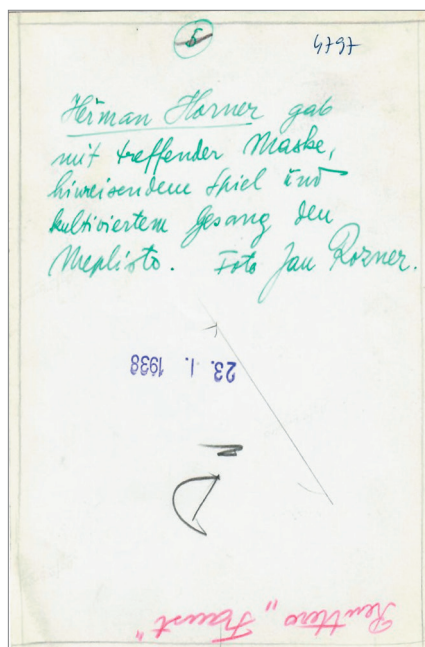 5
4797
Herman Horner gab
mit treffender Maske,
hinreisendem Spiel und
kultiviertem Gesang den
Mephisto. Foto Jan Rozner.
23. 1. 1938
"Faust"